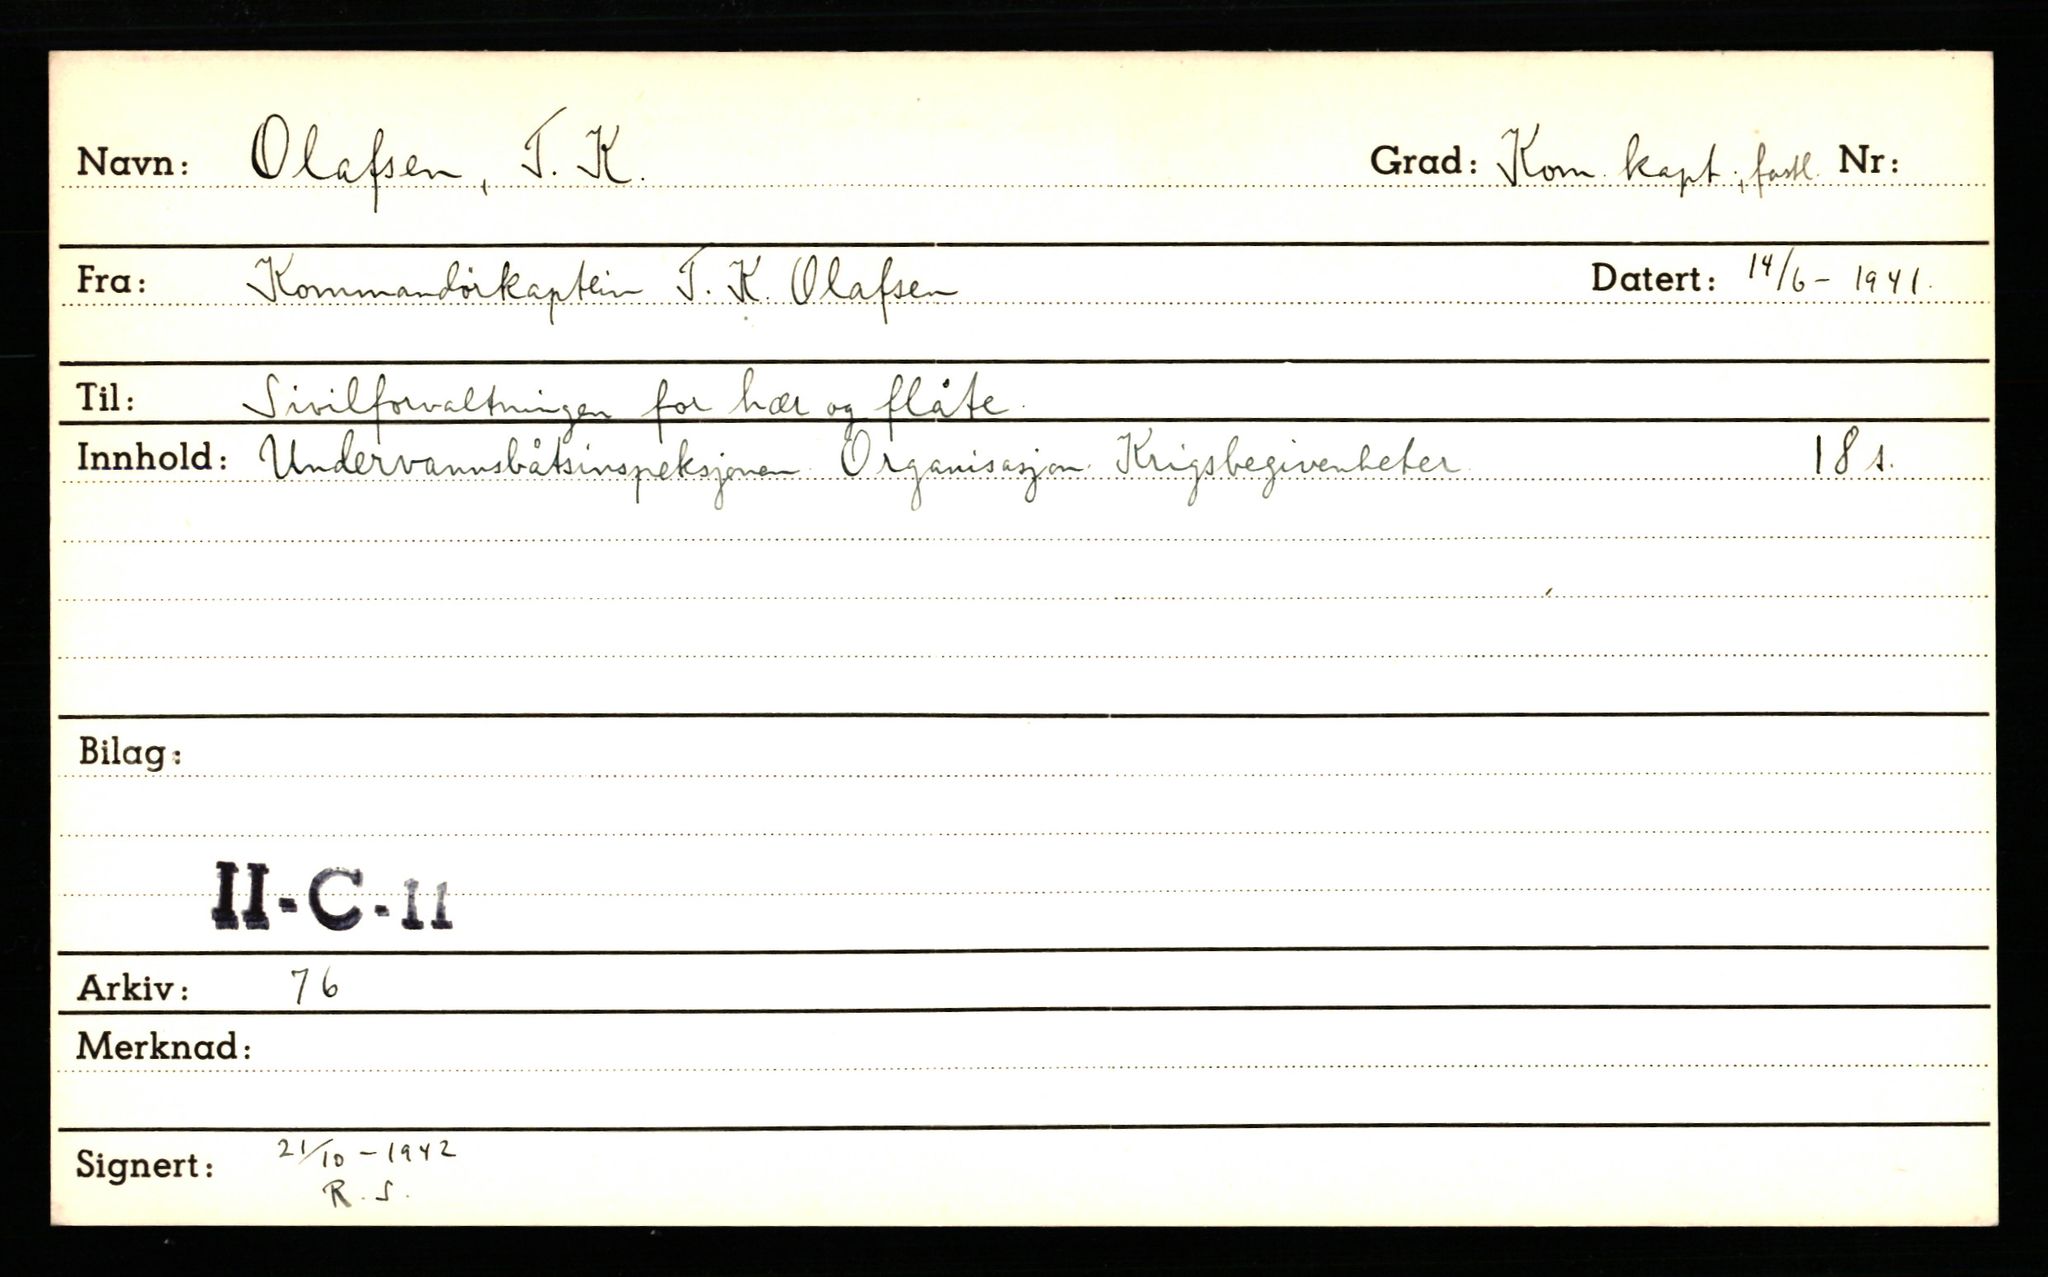 Navn: Olafsen, T. K. Grad: Kom. kapt., Nr:
Fra: Kommandörkaptein T. K. Olafsen Datert: 14/6-1941.
Til: Sivilforvaltningen for hær og flåte.
Innhold: Undervannsbåtsinspeksjonen. Organisasjon. Krigsbegivenheter. 18 s.
Bilag:
II-C-11
Arkiv: 76
Merknad:
Signert: 21/10-1942
R. S.